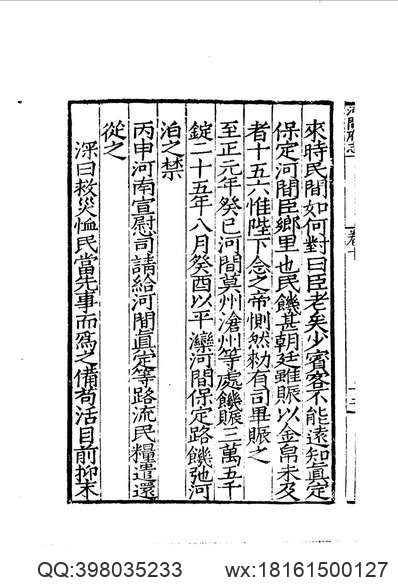 河間府志
卷十
來時民間如何對曰臣老矣少賓客不能遠知真定
保定河間臣鄉里也民饑甚朝廷雖賑以金帛未及
者十五六惟陛下念之帝惻然勑有司畢賑之
至正元年癸巳河間莫州滄州等處饑賑三萬五千
錠二十五年八月癸酉以平灤河間保定路饑弛河
泊之禁
丙申河南宣慰司請給河間真定等路流民糧遣還
從之
深曰救災恤民當先事而為之備苟活目前抑末
QQ:398035233
wx:18161500127